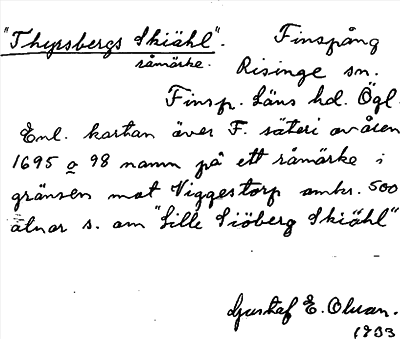 "Thyrsbergs Skiähl". Finspång
råmärke. Risinge sn.
Finsp. Läns hd. Ögl.
Enl. kartan över F. säteri av åren
1695 o 98 namn på ett råmärke i
gränsen mot Viggestorp omkr. 500
alnar s. om "Lille Siöberg Skiähl"
Gustaf E. Olsson.
1933